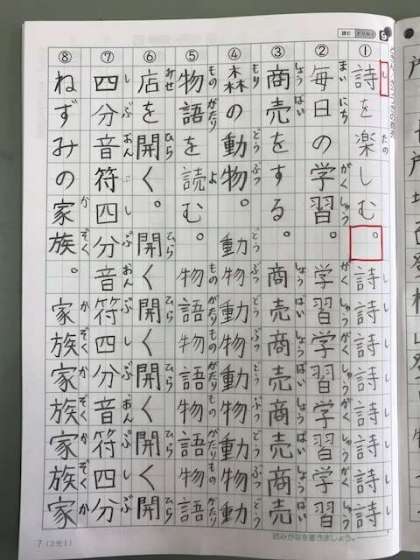 ①詩を楽しむ。詩詩詩詩詩詩詩詩
②毎日の学習。学習学習学習学習
③商売をする。商売商売商売商売
④森の動物。動物動物動物動物動
⑤物語を読む。物語物語物語物語
⑥店を開く。開く開く開く開く開
⑦四分音符四分音符四分音符四分
⑧ねずみの家族。家族家族家族家
読みがなを書きましょう。